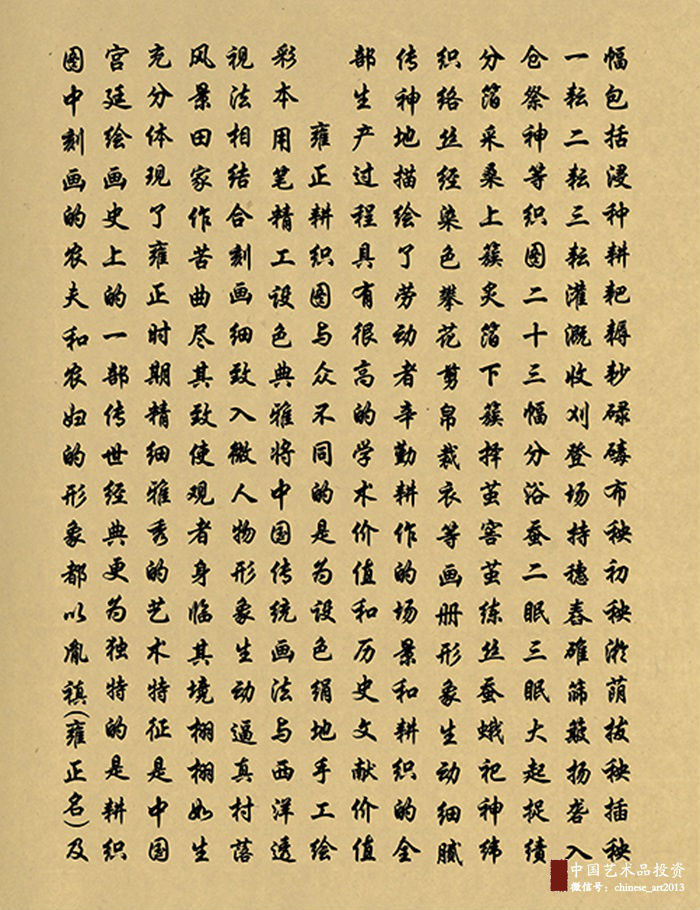 幅包括浸种耕耙耨耖碌碡布秧初秧淤荫拔秧插秧
一耘二耘三耘灌溉收刈登场持穗舂碓筛簸扬砻入
仓祭神等织图二十三幅分浴蚕二眠三眠大起捉绩
分箔采桑上簇炙箔下簇择茧窖茧练丝蚕蛾祀神纬
织络丝经染色攀花剪帛裁衣等画册形象生动细腻
传神地描绘了劳动者辛勤耕作的场景和耕织的全
部生产过程具有很高的学术价值和历史文献价值
雍正耕织图与众不同的是为设色绢地手工绘
彩本用笔精工设色典雅将中国传统画法与西洋透
视法相结合刻画细致入微人物形象生动逼真村落
风景田家作苦曲尽其致使观者身临其境栩栩如生
充分体现了雍正时期精细雅秀的艺术特征是中国
宫廷绘画史上的一部传世经典更为独特的是耕织
图中刻画的农夫和农妇的形象都以胤禛(雍正名)及
中国艺术品投资
微信号：chinese_art2013